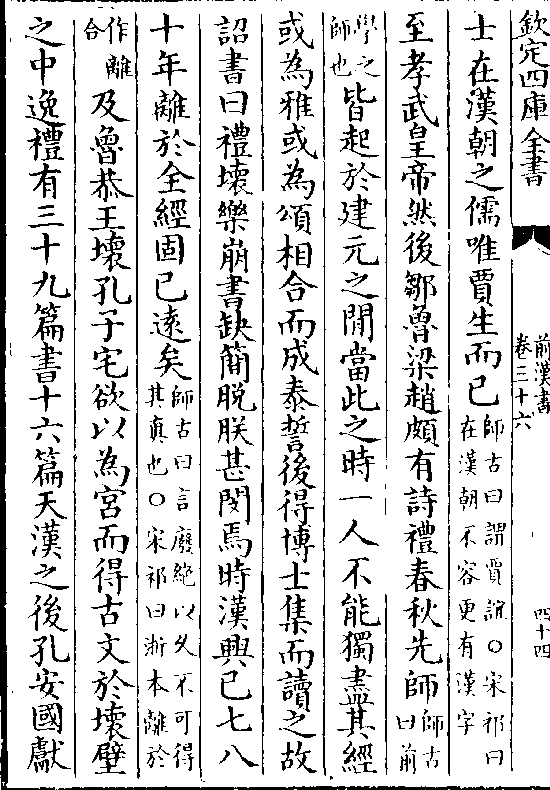 欽定四庫全書
前漢書
卷三十六
四十四
士在漢朝之儒唯賈生而已師古曰謂賈誼○宋祁曰
在漢朝不容更有漢字
至孝武皇帝然後鄒魯梁趙頗有詩禮春秋先師師古
曰前
學之
師也皆起於建元之閒當此之時一人不能獨盡其經
或為雅或為頌相合而成泰誓後得博士集而讀之故
詔書曰禮壞樂崩書缺簡脫朕甚閔焉時漢興已七八
十年離於全經固已遠矣師古曰言廢絶以久不可得
其真也○宋祁曰浙本離於
作離
合及魯恭王壞孔子宅欲以為宮而得古文於壞壁
之中逸禮有三十九篇書十六篇天漢之後孔安國獻